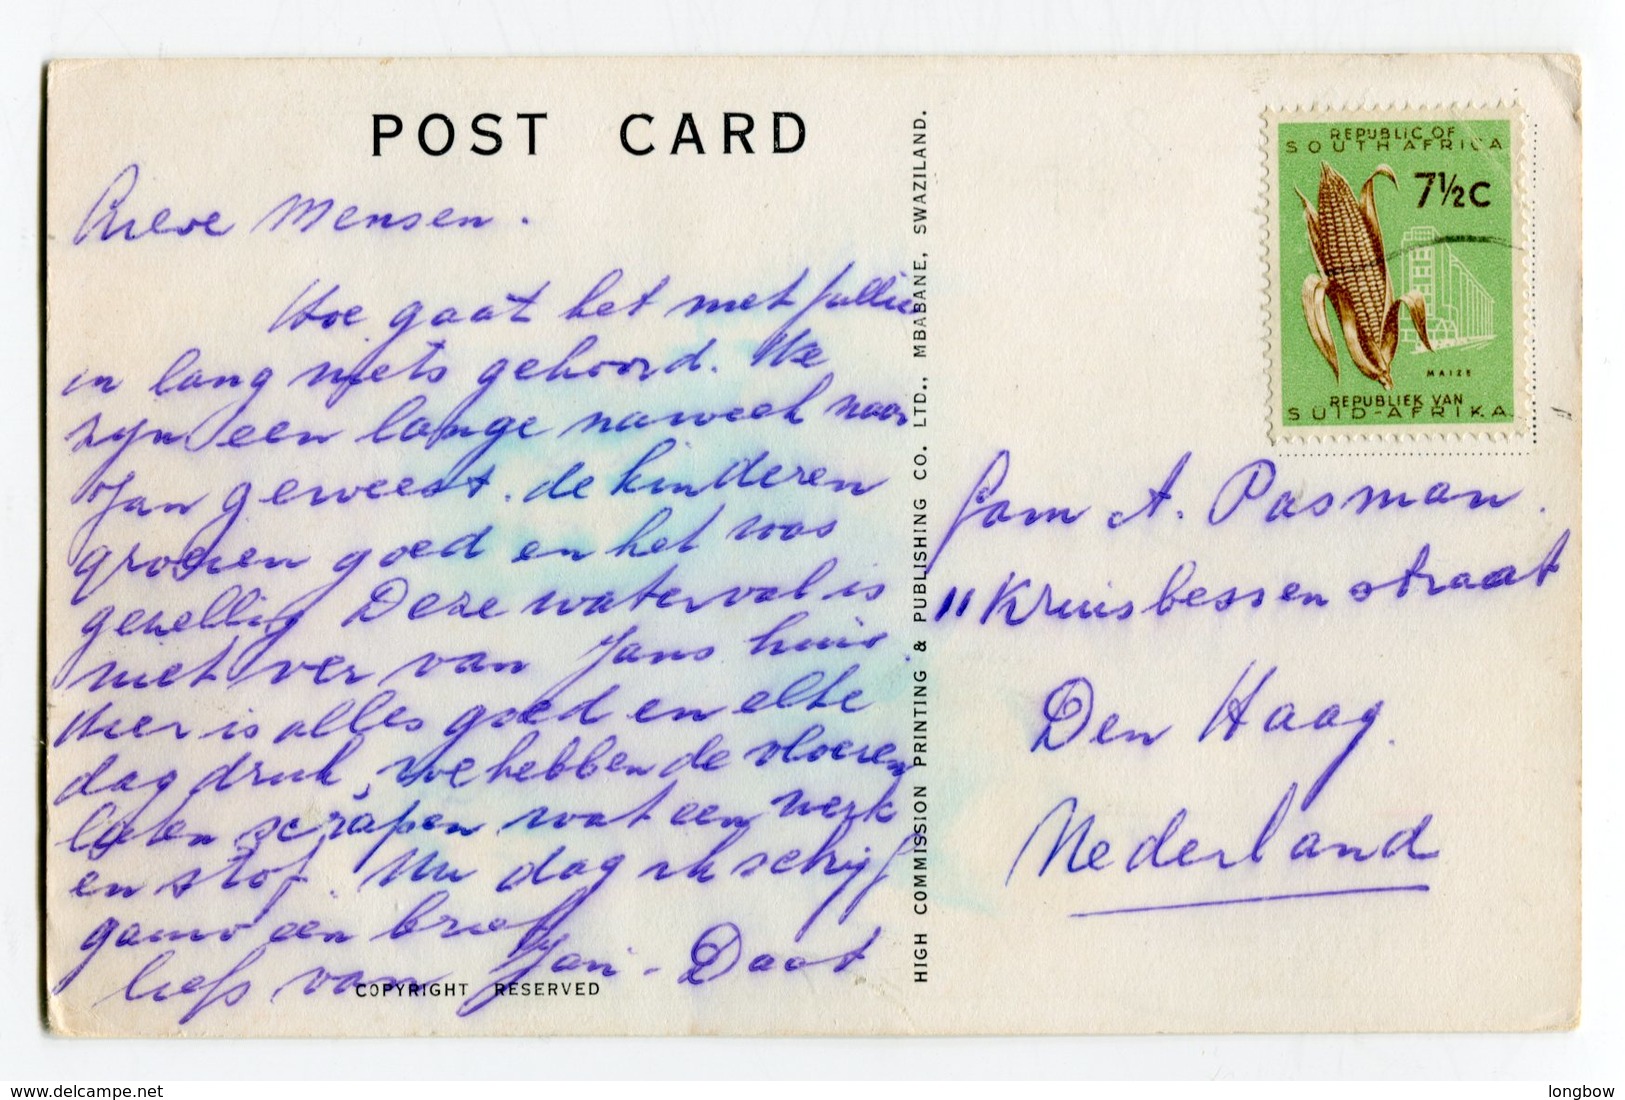 POST CARD
Lieve Mensen.
Hoe gaat het met jullie
in lang niets gehoord. We
zijn een lange naweek naar
Jan geweest. de kinderen
groeien goed en het was
gezellig Deze waterval is
niet ver van Jans huis.
Hier is alles goed en elke
dag druk, we hebben de vloeren
laten scrapen wat een werk
en stof. Nu dag ik schrijf
gauw een brief
liefs van Jan - Daat
COPYRIGHT RESERVED
HIGH COMMISSION PRINTING & PUBLISHING CO. LTD., MBABANE, SWAZILAND.
REPUBLIC OF
SOUTH AFRICA
7½C
MAIZE
REPUBLIEK VAN
SUID-AFRIKA
Fam A. Pasman.
11 Kruisbessenstraat
Den Haag.
Nederland
delcampe.net
longbow